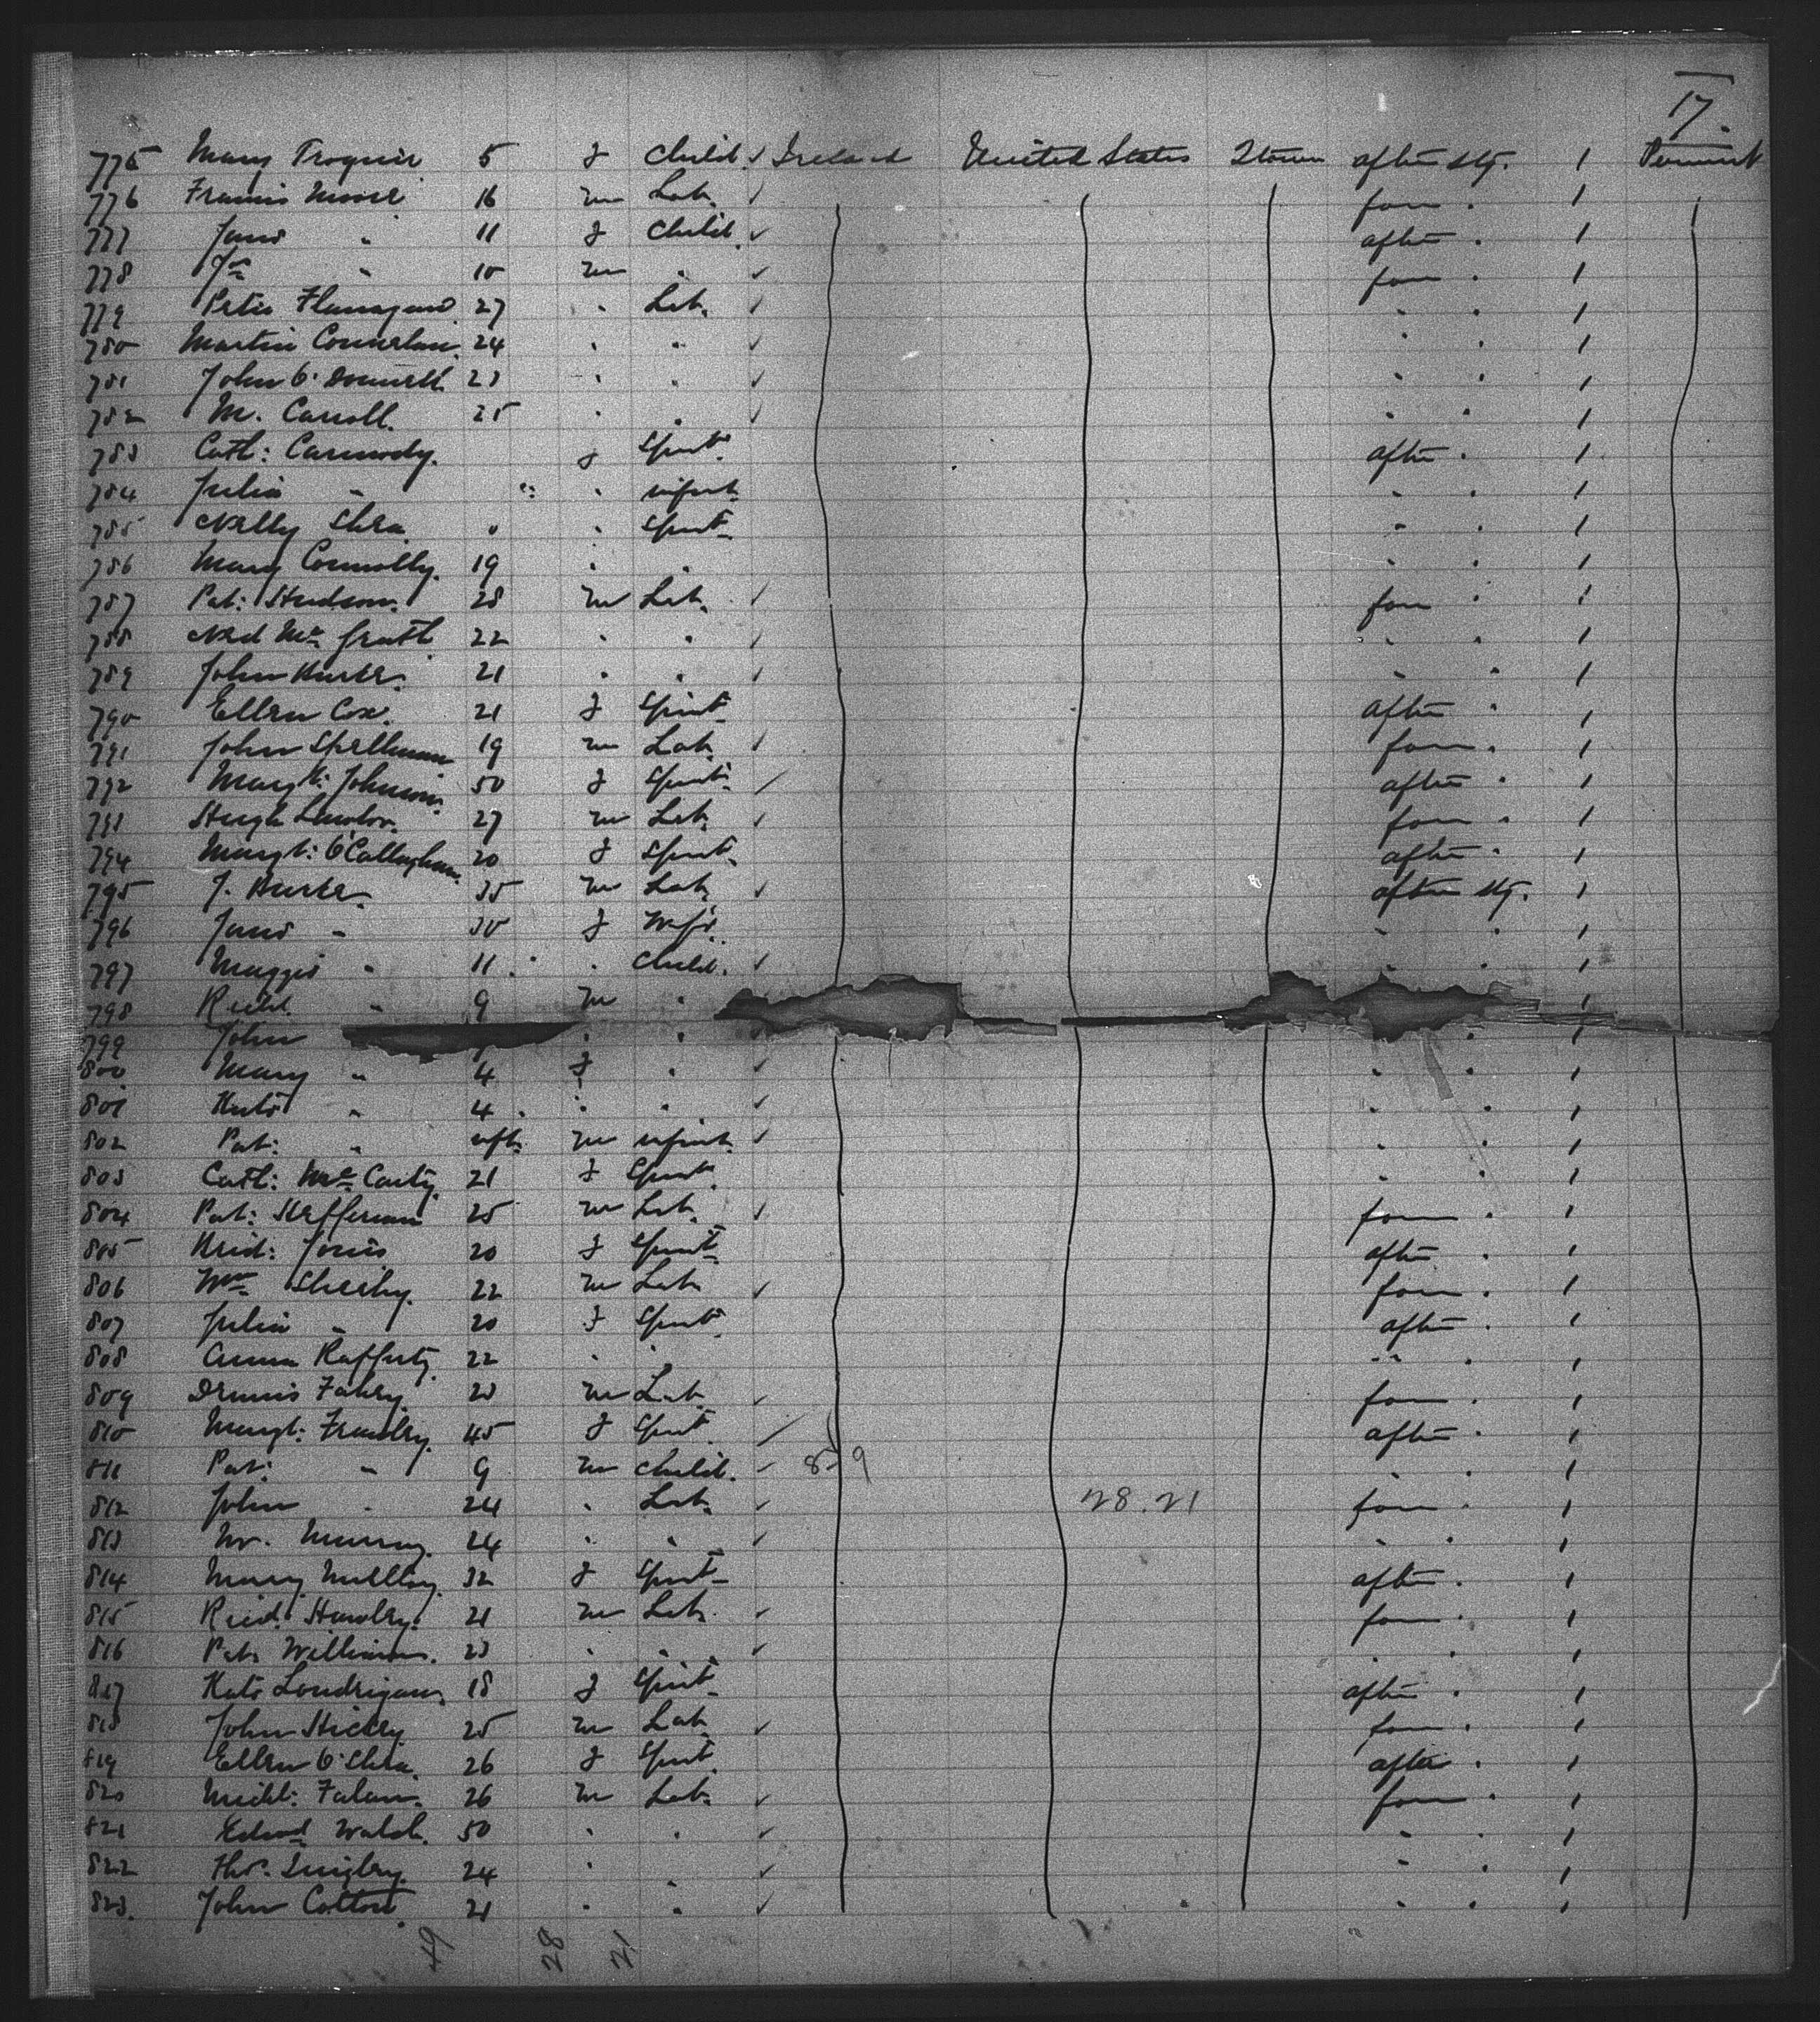 17.
775 Mary Troguir 5 f Child ✓ Ireland United States 2 town after stg. 1 Permint
776 Francis Moore 16 m Lab. ✓ for . 1
777 Jane " 11 f Child ✓ after . 1
778 Jno " 10 m . ✓ for . 1
779 Peter Flanagan 27 . Lab. ✓ . . 1
780 Martin Conurlan 24 . . ✓ . . 1
781 John O'Donnell 23 . . ✓ . . 1
782 M. Carroll. 25 . . ✓ . . 1
783 Cath: Carmody. f Spint. after . 1
784 Julia " . infnt . . 1
785 Nelly Shea . . Spint . . 1
786 Mary Connolly. 19 . . . . 1
787 Pat: Hudson. 28 m Lab. ✓ for . 1
788 Ned McGrath 22 . . ✓ . . 1
789 John Burke. 21 . . ✓ . . 1
790 Ellen Cox. 21 f Spint after . 1
791 John Spellman 19 m Lab. ✓ for . 1
792 Margt: Johnson. 50 f Spint. ✓ after . 1
793 Hugh Lawlor. 27 m Lab. ✓ for . 1
794 Margt: O'Callaghan. 20 f Spint. after . 1
795 J. Burke. 35 m Lab. ✓ after stg. 1
796 Jane " 30 f Wife. . . 1
797 Maggie " 11 . . Child. ✓ . . 1
798 Richd. " 9 m . 1
799 John . . . 1
800 Mary " 4 f . ✓ . . 1
801 Kate " 4 . . . ✓ . . 1
802 Pat: " inft. m infnt. ✓ . . 1
803 Cath: McCarty. 21 f Spint. . . 1
804 Pat: Heffernan 25 m Lab. ✓ for . 1
805 Brid: Joris 20 f Spint. after . 1
806 Wm Sheehy. 22 m Lab ✓ for . 1
807 Julia " 20 f Spint. after . 1
808 Anna Rafferty. 22 . . . . 1
809 Dennis Fahey. 20 m Lab. ✓ for . 1
810 Margt: Frawley. 45 f Spint. ✓ after . 1
811 Pat: " 9 m Child. ✓ 8-9 . . 1
812 John " 24 . Lab. ✓ 28.21 for . 1
813 W. Murray. 24 . . ✓ . . 1
814 Mary Mulloy. 32 f Spint after . 1
815 Richd: Hawley. 21 m Lab. ✓ for . 1
816 Pat: Williams. 23 . . ✓ . . 1
817 Kate Londrigan. 18 f Spint after . 1
818 John Hickey 25 m Lab. ✓ for . 1
819 Ellen O'Shea. 26 f Spint. after . 1
820 Michl: Falan. 26 m Lab. ✓ for . 1
821 Edwd Walsh. 50 . . ✓ . . 1
822 Tho. Quigley. 24 . . ✓ . . 1
823. John Cottort. 21 . . ✓ . . 1
49 28 21